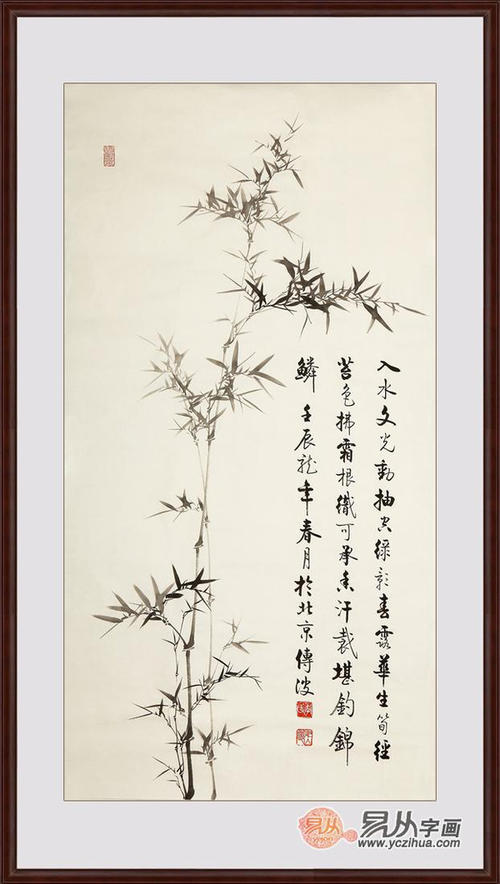 入水文光動抽空綠影春露華生筍徑
苔色拂霜根織可承香汗裁堪釣錦
鱗 壬辰龍年春月於北京傳波
易从
易从字画
www.yczihua.com